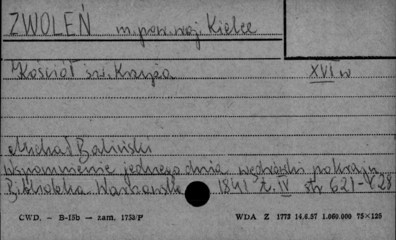 ZWOLEŃ m. pow. woj. Kielce
Kościół św. Krzyża XVI w
Michał Baliński
Wspomnienie jednego dnia wędrówki po kraju
Biblioteka Warszawska 1841 t. IV str 621-628
CWD. - B-15b - zam. 1753/P WDA Z 1772 14.6.57 1.060.000 75×125